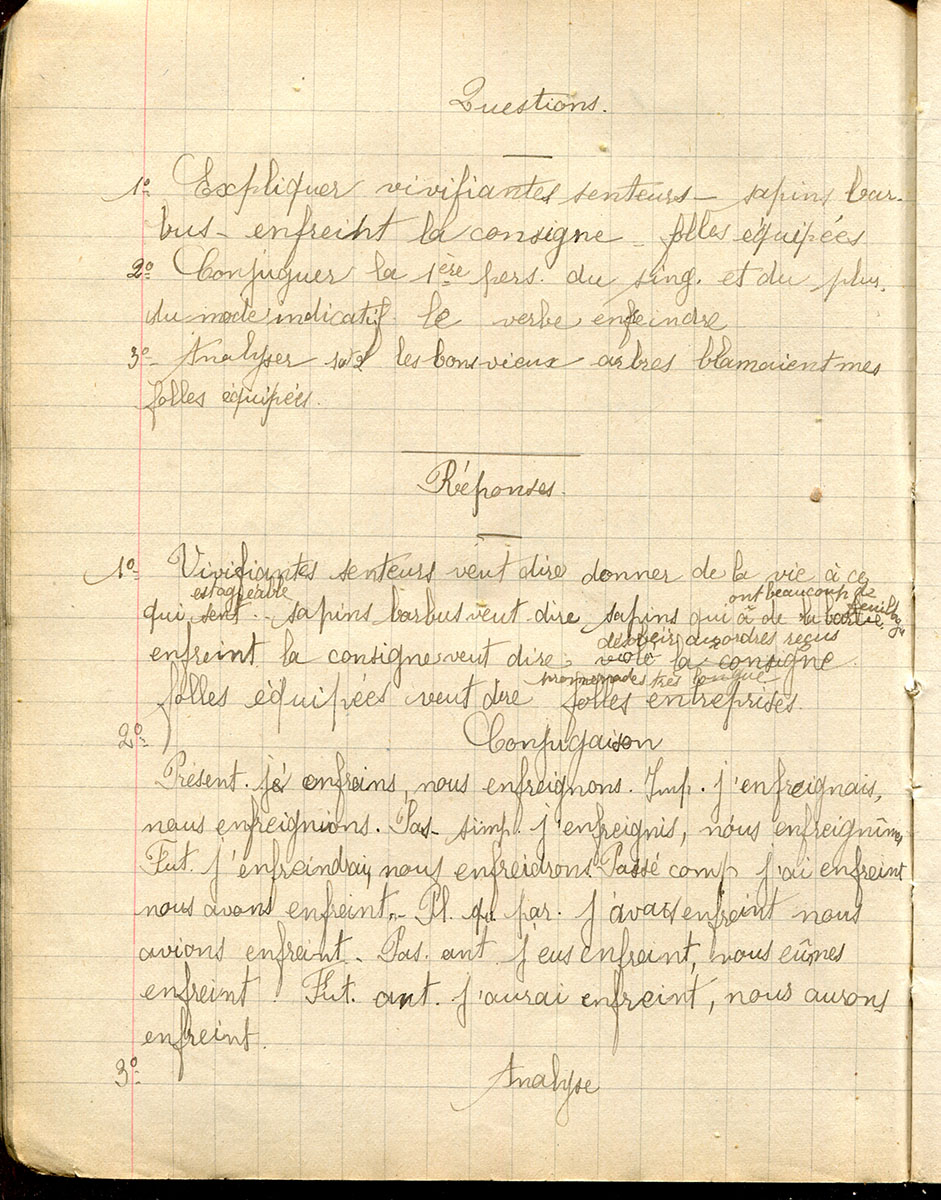 Questions.
1º Expliquer vivifiantes senteurs - sapins bar-
bus - enfreint la consigne - folles équipées
2º Conjuguer la 1ère pers. du sing. et du plur.
du mode indicatif le verbe enfeindre
3º Analyser les bons vieux arbres blamaient mes
folles équipées.
Réponses.
1º Vivifiantes senteurs veut dire donner de la vie à ce
ont beaucoup de
qui sent - sapins barbus veut dire sapins qui à de la barbe
désobéir aux ordres reçus
enfreint la consigne veut dire violé la consigne.
promenades très longue
folles équipées veut dire folles entreprises.
2º Conjugaison
Présent. j'enfrains, nous enfreignons. Imp. j'enfreignais,
nous enfreignions. Pas- simp. j'enfreignis, nous enfreignîmes,
Fut. j'enfreindrai, nous enfreidrons Passé comp j'ai enfreint
nous avons enfreint. - Pl. que par. j'avais enfreint nous
avions enfreint - Pas. ant. j'eus enfreint, nous eûmes
enfreint. Fut. ant. j'aurai enfreint, nous aurons
enfreint.
3º Analyse